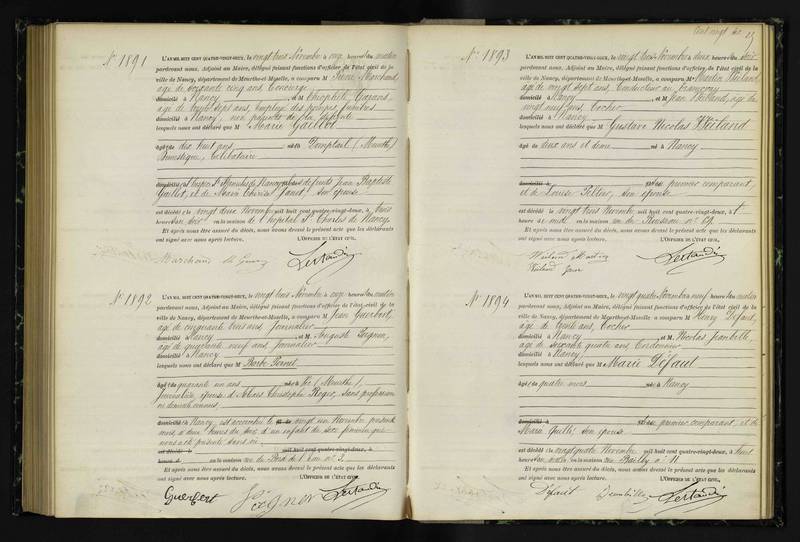 N° 1891
L'AN MIL HUIT CENT QUATRE-VINGT-DEUX, le vingt trois Novembre à onze heures du matin
pardevant nous, Adjoint au Maire, délégué faisant fonctions d'officier de l'état civil de la
ville de Nancy, département de Meurthe-et-Moselle, a comparu M Pierre Marchand,
âgé de soixante cinq ans, Concierge
domicilié à Nancy et M Théophile
âgé de trente sept ans, Employé des pompes funèbres
domicilié à Nancy, non parents de la défunte
lesquels nous ont déclaré que M Marie Gaillot
âgée de dix huit ans née à Domptail (Meurthe)
Domestique, Célibataire
domiciliée à Nancy fille des défunts Jean Baptiste
Gaillot, et de Marie Thérèse Janet, son épouse
est décédée le vingt deux Novembre mil huit cent quatre-vingt-deux, à trois
heures du soir en la maison de l'hôpital St Charles de Nancy
Et après nous être assuré du décès, nous avons dressé le présent acte que les déclarants
ont signé avec nous après lecture. L'OFFICIER DE L'ÉTAT CIVIL,
Marchand
N° 1892
L'AN MIL HUIT CENT QUATRE-VINGT-DEUX, le vingt trois Novembre à onze heures du matin
pardevant nous, Adjoint au Maire, délégué faisant fonctions d'officier de l'état civil de la
ville de Nancy, département de Meurthe-et-Moselle, a comparu M Jean Guerbert,
âgé de cinquante trois ans, Journalier
domicilié à Nancy et M Auguste
âgé de quarante neuf ans Journalier
domicilié à Nancy
lesquels nous ont déclaré que M Barbe
âgée de quarante un ans née à (Meurthe),
Journalière, épouse d'Alois Christophe Roger, sans profession
ni domicile connus
domiciliée à Nancy, est accouchée le vingt un Novembre présent
mois, à deux heures du soir, d'un enfant du sexe féminin que
nous a été présenté sans vie
est décédé le mil huit cent quatre-vingt-deux, à
heures d en la maison rue du Bord de l'Eau n° 2
Et après nous être assuré du décès, nous avons dressé le présent acte que les déclarants
ont signé avec nous après lecture. L'OFFICIER DE L'ÉTAT CIVIL,
Guerbert
N° 1893
L'AN MIL HUIT CENT QUATRE-VINGT-DEUX, le vingt trois Novembre à deux heures du soir
pardevant nous, Adjoint au Maire, délégué faisant fonctions d'officier de l'état civil de la
ville de Nancy, département de Meurthe-et-Moselle, a comparu M Martin Wiéland,
âgé de vingt sept ans, Conducteur au tramways
domicilié à Nancy et M Jean Wiéland, âgé de
vingt neuf ans, Cocher
domicilié à Nancy
lesquels nous ont déclaré que M Gustave Nicolas Wiéland
âgé de deux ans et demi né à Nancy
domicilié à fils du premier comparant,
et de Louise Peltier, son épouse
est décédé le vingt trois Novembre mil huit cent quatre-vingt-deux, à
heure de midi en la maison rue du Ruisseau n° 69
Et après nous être assuré du décès, nous avons dressé le présent acte que les déclarants
ont signé avec nous après lecture. L'OFFICIER DE L'ÉTAT CIVIL,
Wieland Martin
Wieland Jean
N° 1894
L'AN MIL HUIT CENT QUATRE-VINGT-DEUX, le vingt quatre Novembre à neuf heures du matin
pardevant nous, Adjoint au Maire, délégué faisant fonctions d'officier de l'état civil de la
ville de Nancy, département de Meurthe-et-Moselle, a comparu M Henry Défaut,
âgé de trente ans, Cocher
domicilié à Nancy et M Nicolas Jeanbille,
âgé de soixante quatre ans, Cordonnier
domicilié à Nancy
lesquels nous ont déclaré que M Marie Défaut
âgée de quatre mois née à Nancy
domiciliée à fille du premier comparant, et de
Marie Guillé son épouse
est décédée le vingt quatre Novembre mil huit cent quatre-vingt-deux, à huit
heures du matin en la maison rue de Bailly n° 11
Et après nous être assuré du décès, nous avons dressé le présent acte que les déclarants
ont signé avec nous après lecture. L'OFFICIER DE L'ÉTAT CIVIL,
Défaut Jeanbille